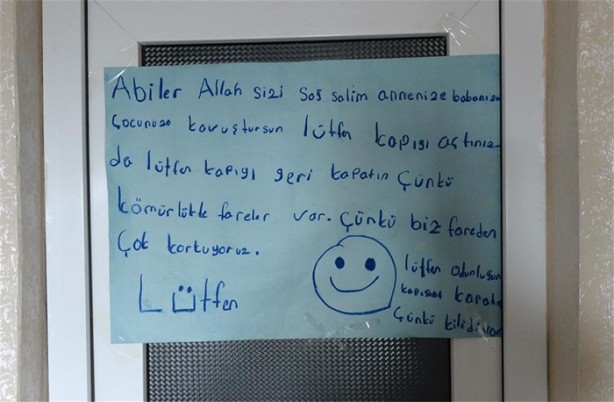 Abiler Allah sizi Sağ salim annenize babanıza
Çocunuza kavuştursun lütfen kapıyı açtınız
da lütfen kapıyı geri kapatın Çünkü
kömürlükte fareler var. Çünkü biz fareden
Çok korkuyoruz.
Lütfen
lütfen odunluğun
kapısını kapatın
Çünkü